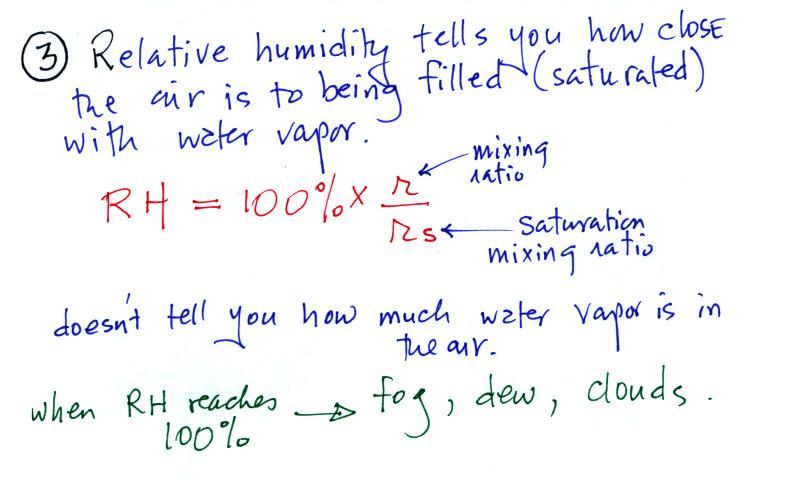 ③ Relative humidity tells you how close
the air is to being filled (saturated)
with water vapor.
mixing
ratio
RH = 100% x r
rs
saturation
mixing ratio
doesn't tell you how much water vapor is in
the air.
when RH reaches → fog, dew, clouds.
100%